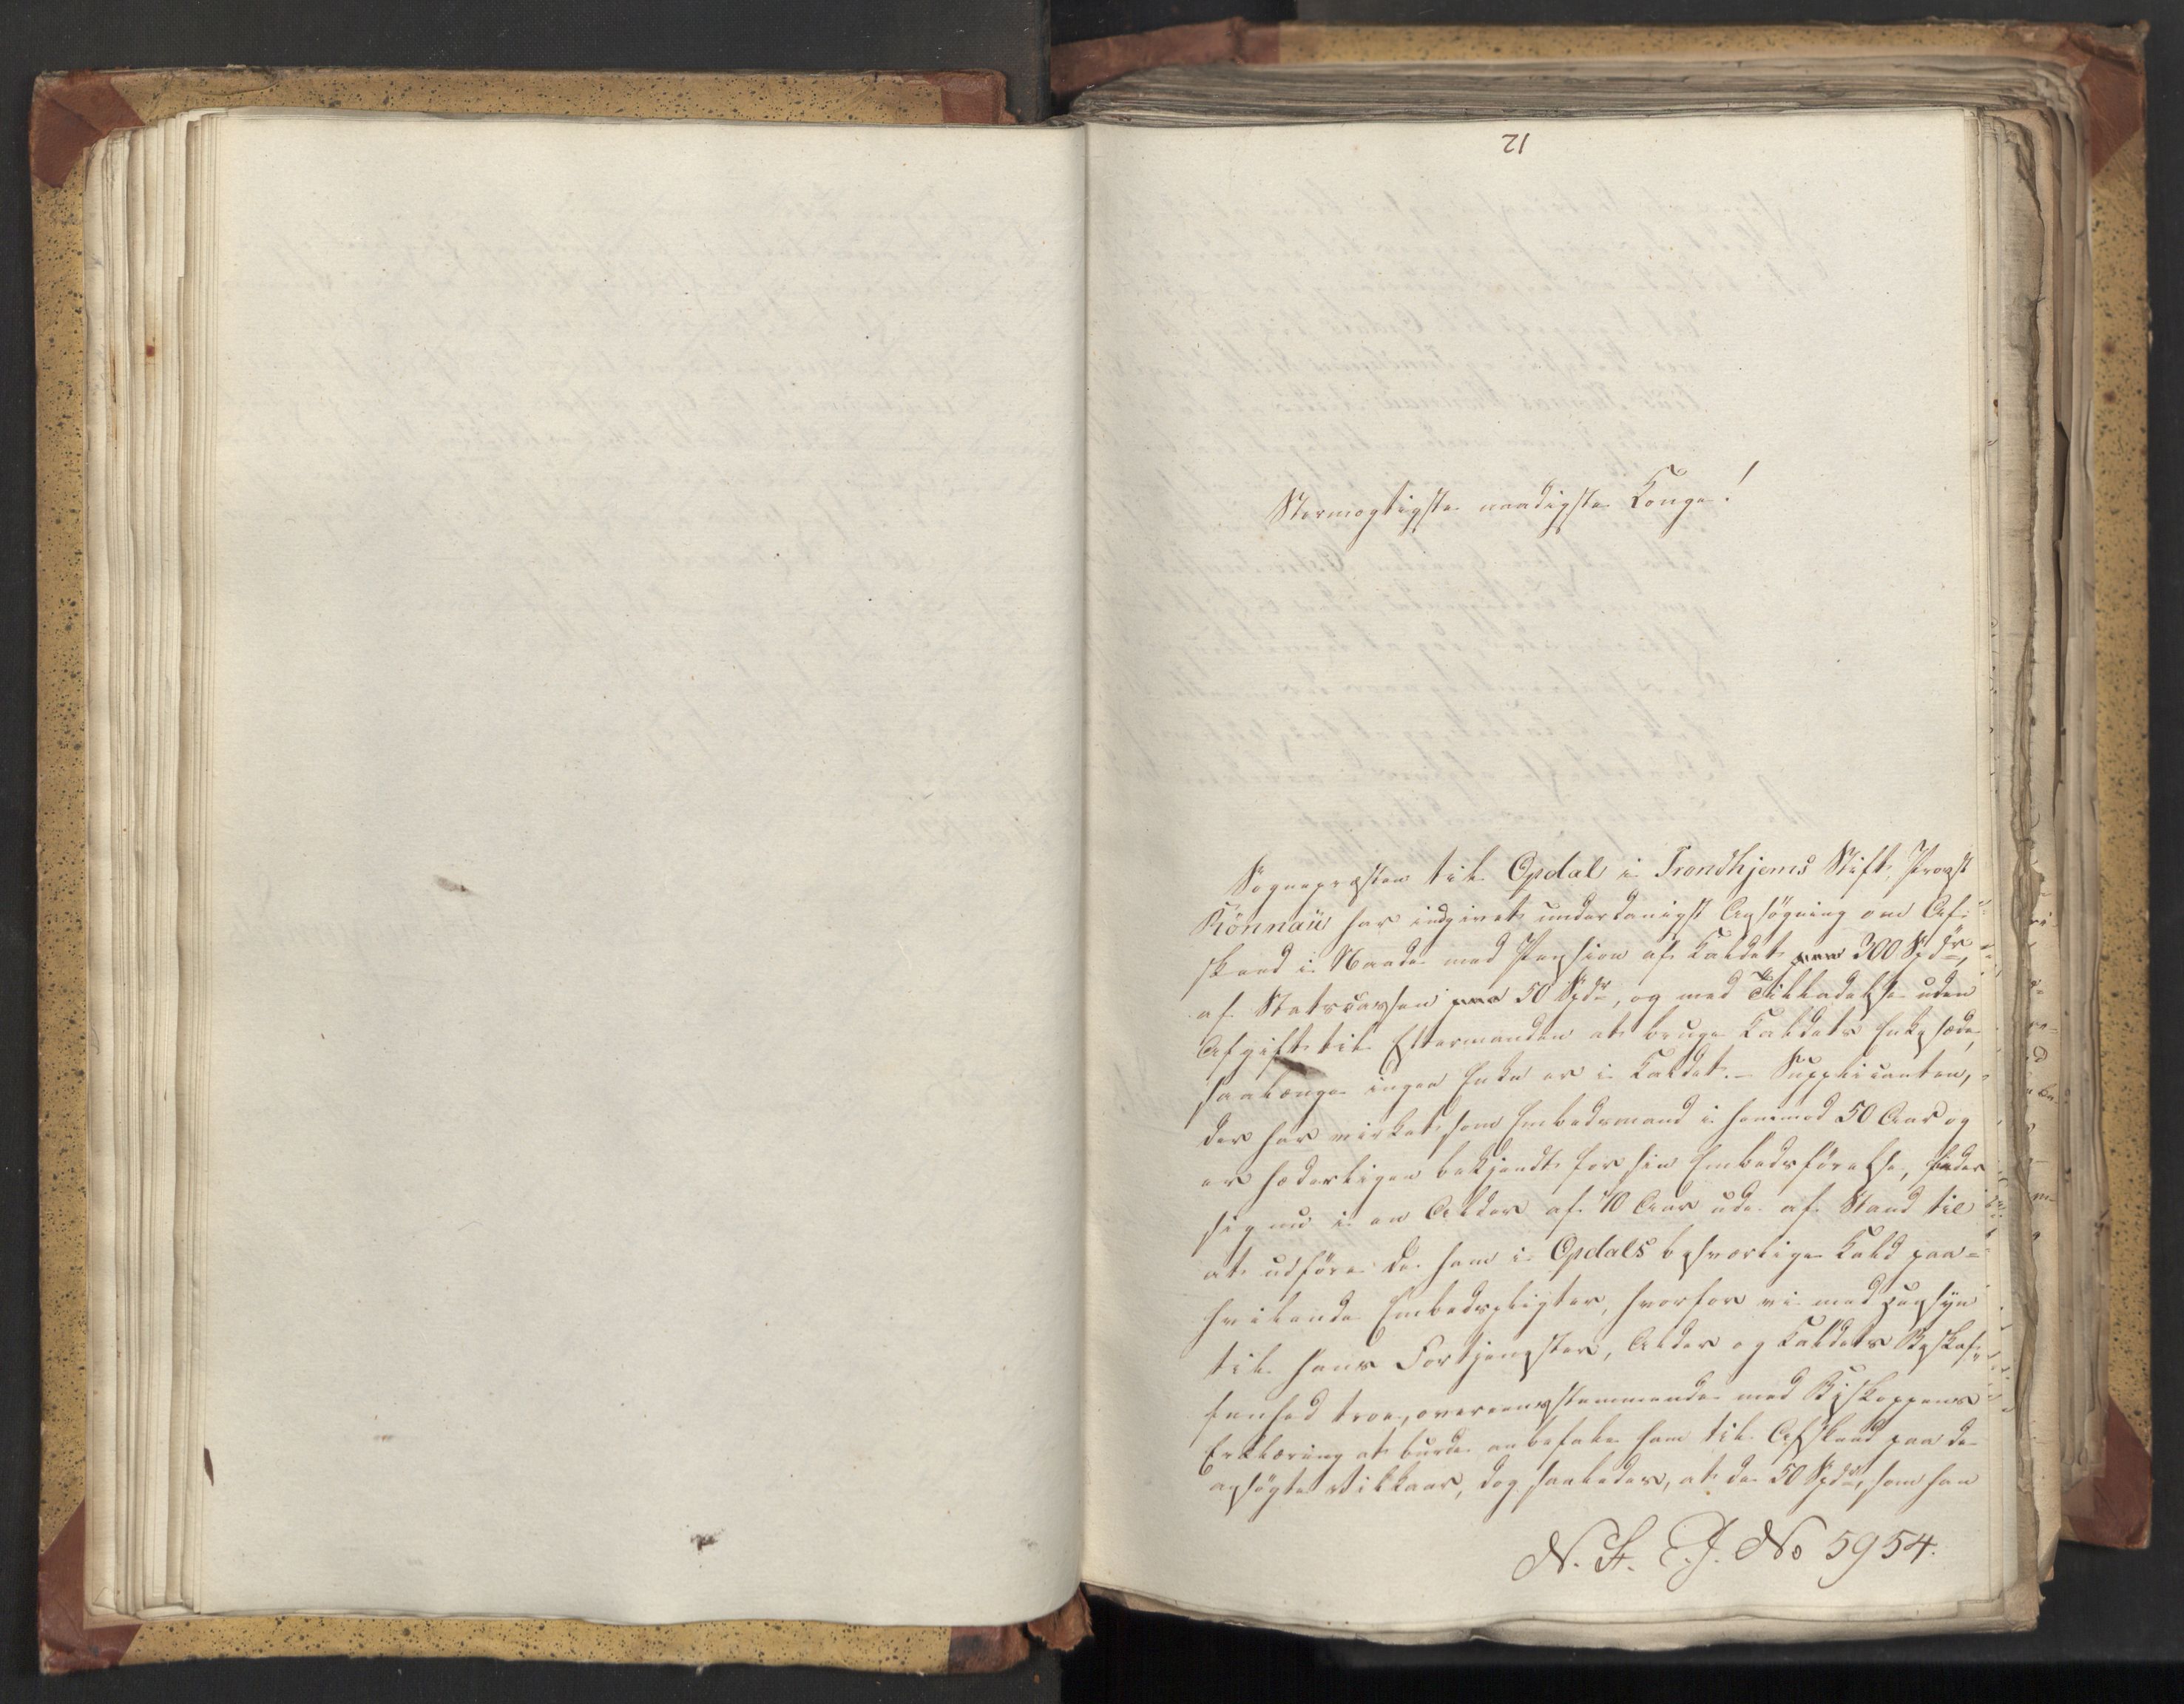 12
Stormægtigste naadigste Konge!
Sognepræsten til Opdal i Trondhjems Stift, Provst
Rönnaü har indgivet underdanigst Ansögning om Af-
skeed i Naade med Pension af Kaldet 300 Spdr,
af Statscassen 50 Spdr, og med Tilladelse uden
Afgift til Eftermanden at bruge Kaldets Enkesæde,
saalænge ingen Enke er i Kaldet. – Supplicanten,
der har virket som Embedsmand i henimod 50 Aar og
er hæderligen bekjendt for sin Embedsförelse, finder
sig nu i en Alder af 70 Aar ude af Stand til
at udföre de ham i Opdals besværlige Kald paa-
hvilende Embedspligter, hvorfor vi med Hensyn
til hans Fortjenester, Alder og Kaldets Beskaf-
fenhed troe, overeensstemmende med Biskoppens
Erklæring at burde anbefale ham til Afskeed paa de
ansögte Vilkaar, dog saaledes, at de 50 Spdr, som han
N. St. E. J. No 5954.